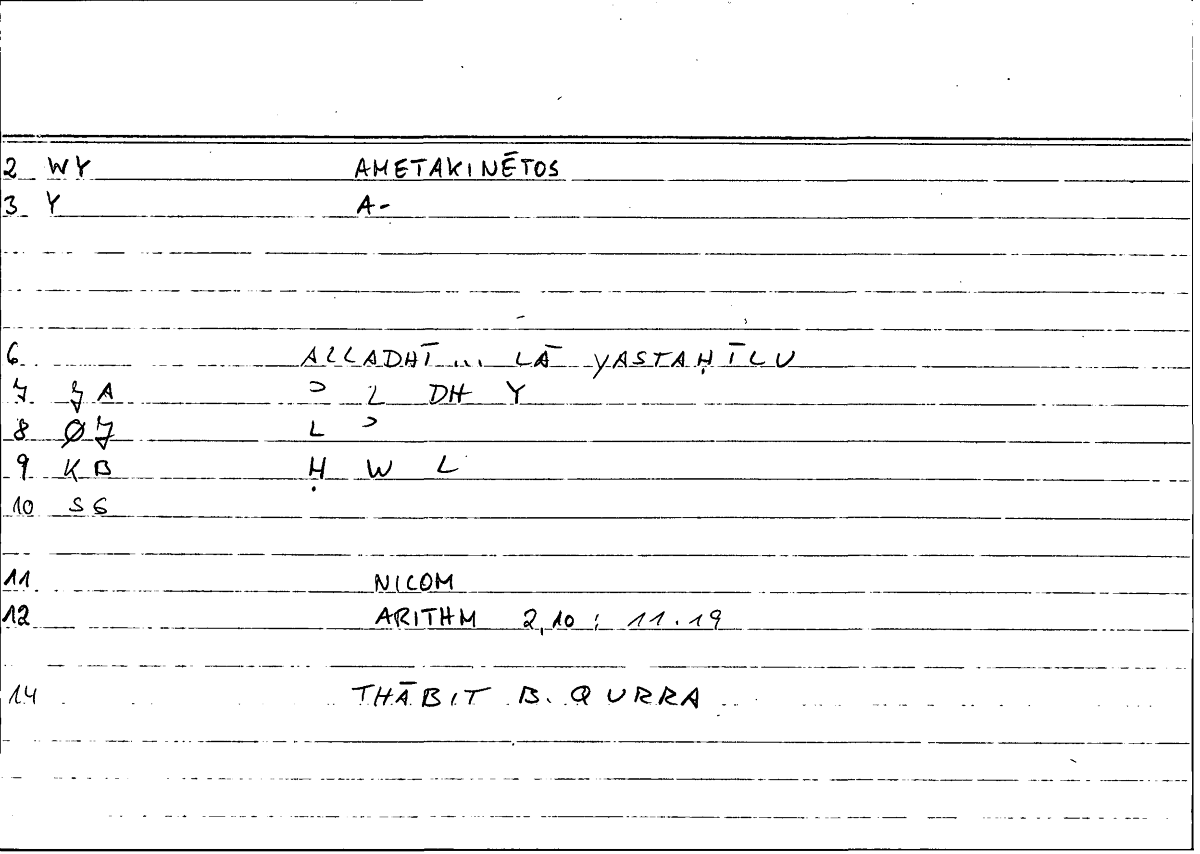 2 WY AMETAKINĒTOS
3 Y A-
6 ALLADHĪ ... LĀ YASTAḤĪLU
7 ʒ A ʾ L DH Y
8 Ø7 L ʾ
9 KB Ḥ W L
10 SG
11 NICOM
12 ARITHM 2,10 : 11.19
14 THĀBIT B. QURRA